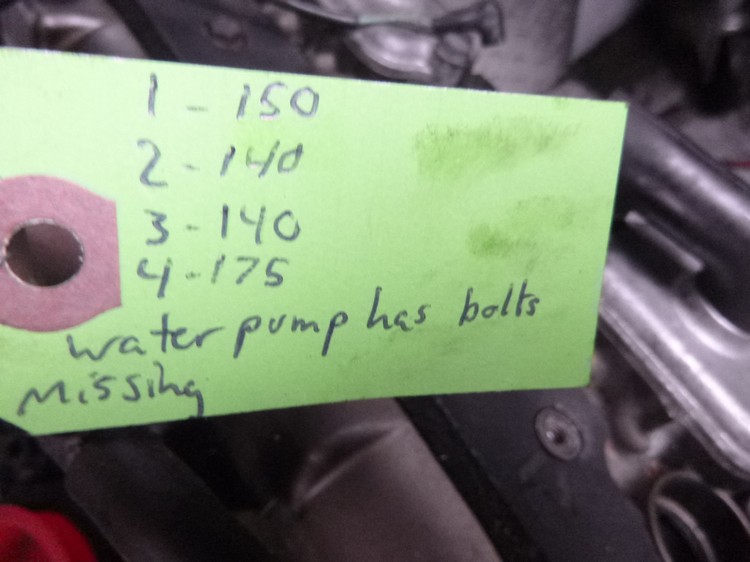 1 - 150
2 - 140
3 - 140
4 - 175
water pump has bolts
missing